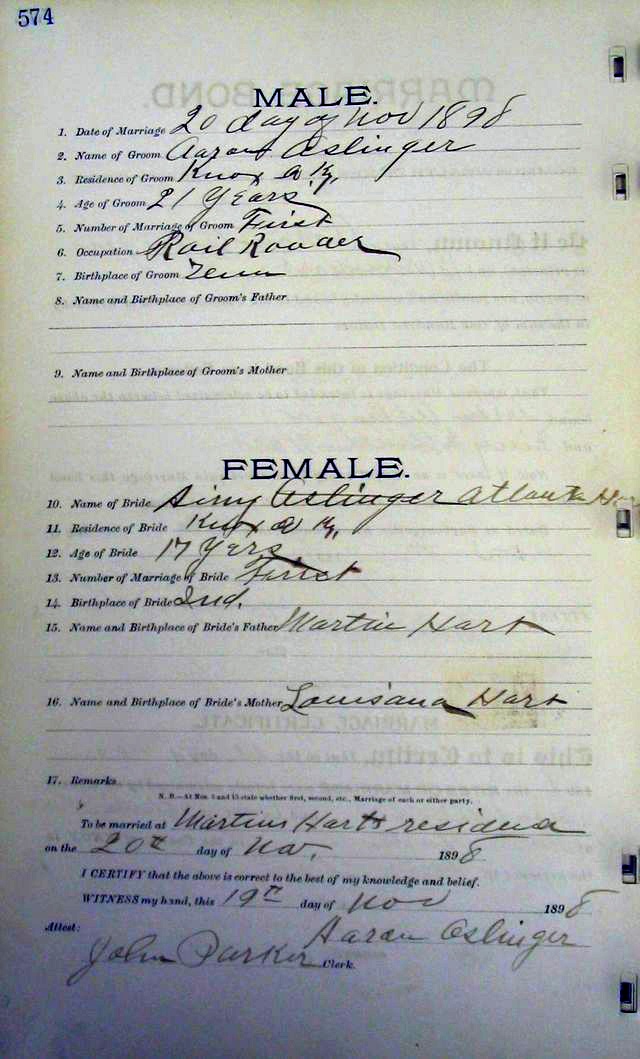 574
MALE.
1. Date of Marriage 20 day of Nov 1898
2. Name of Groom Aaron Oslinger
3. Residence of Groom Knox Co Ky,
4. Age of Groom 21 Years
5. Number of Marriage of Groom First
6. Occupation Rail Roader
7. Birthplace of Groom Tenn
8. Name and Birthplace of Groom's Father
9. Name and Birthplace of Groom's Mother
FEMALE.
10. Name of Bride Oslinger Atlanta
11. Residence of Bride Knox Co Ky,
12. Age of Bride 17 Yers
13. Number of Marriage of Bride First
14. Birthplace of Bride Ind.
15. Name and Birthplace of Bride's Father Martin Hart
16. Name and Birthplace of Bride's Mother Louisana Hart
17. Remarks
N. B.—At Nos. 5 and 13 state whether first, second, etc., Marriage of each or either party.
To be married at Martins Harts residence
on the 20th day of Nov, 1898
I CERTIFY that the above is correct to the best of my knowledge and belief.
WITNESS my hand, this 19th day of Nov 1898
Attest: Aaron Oslinger
John Parker Clerk.